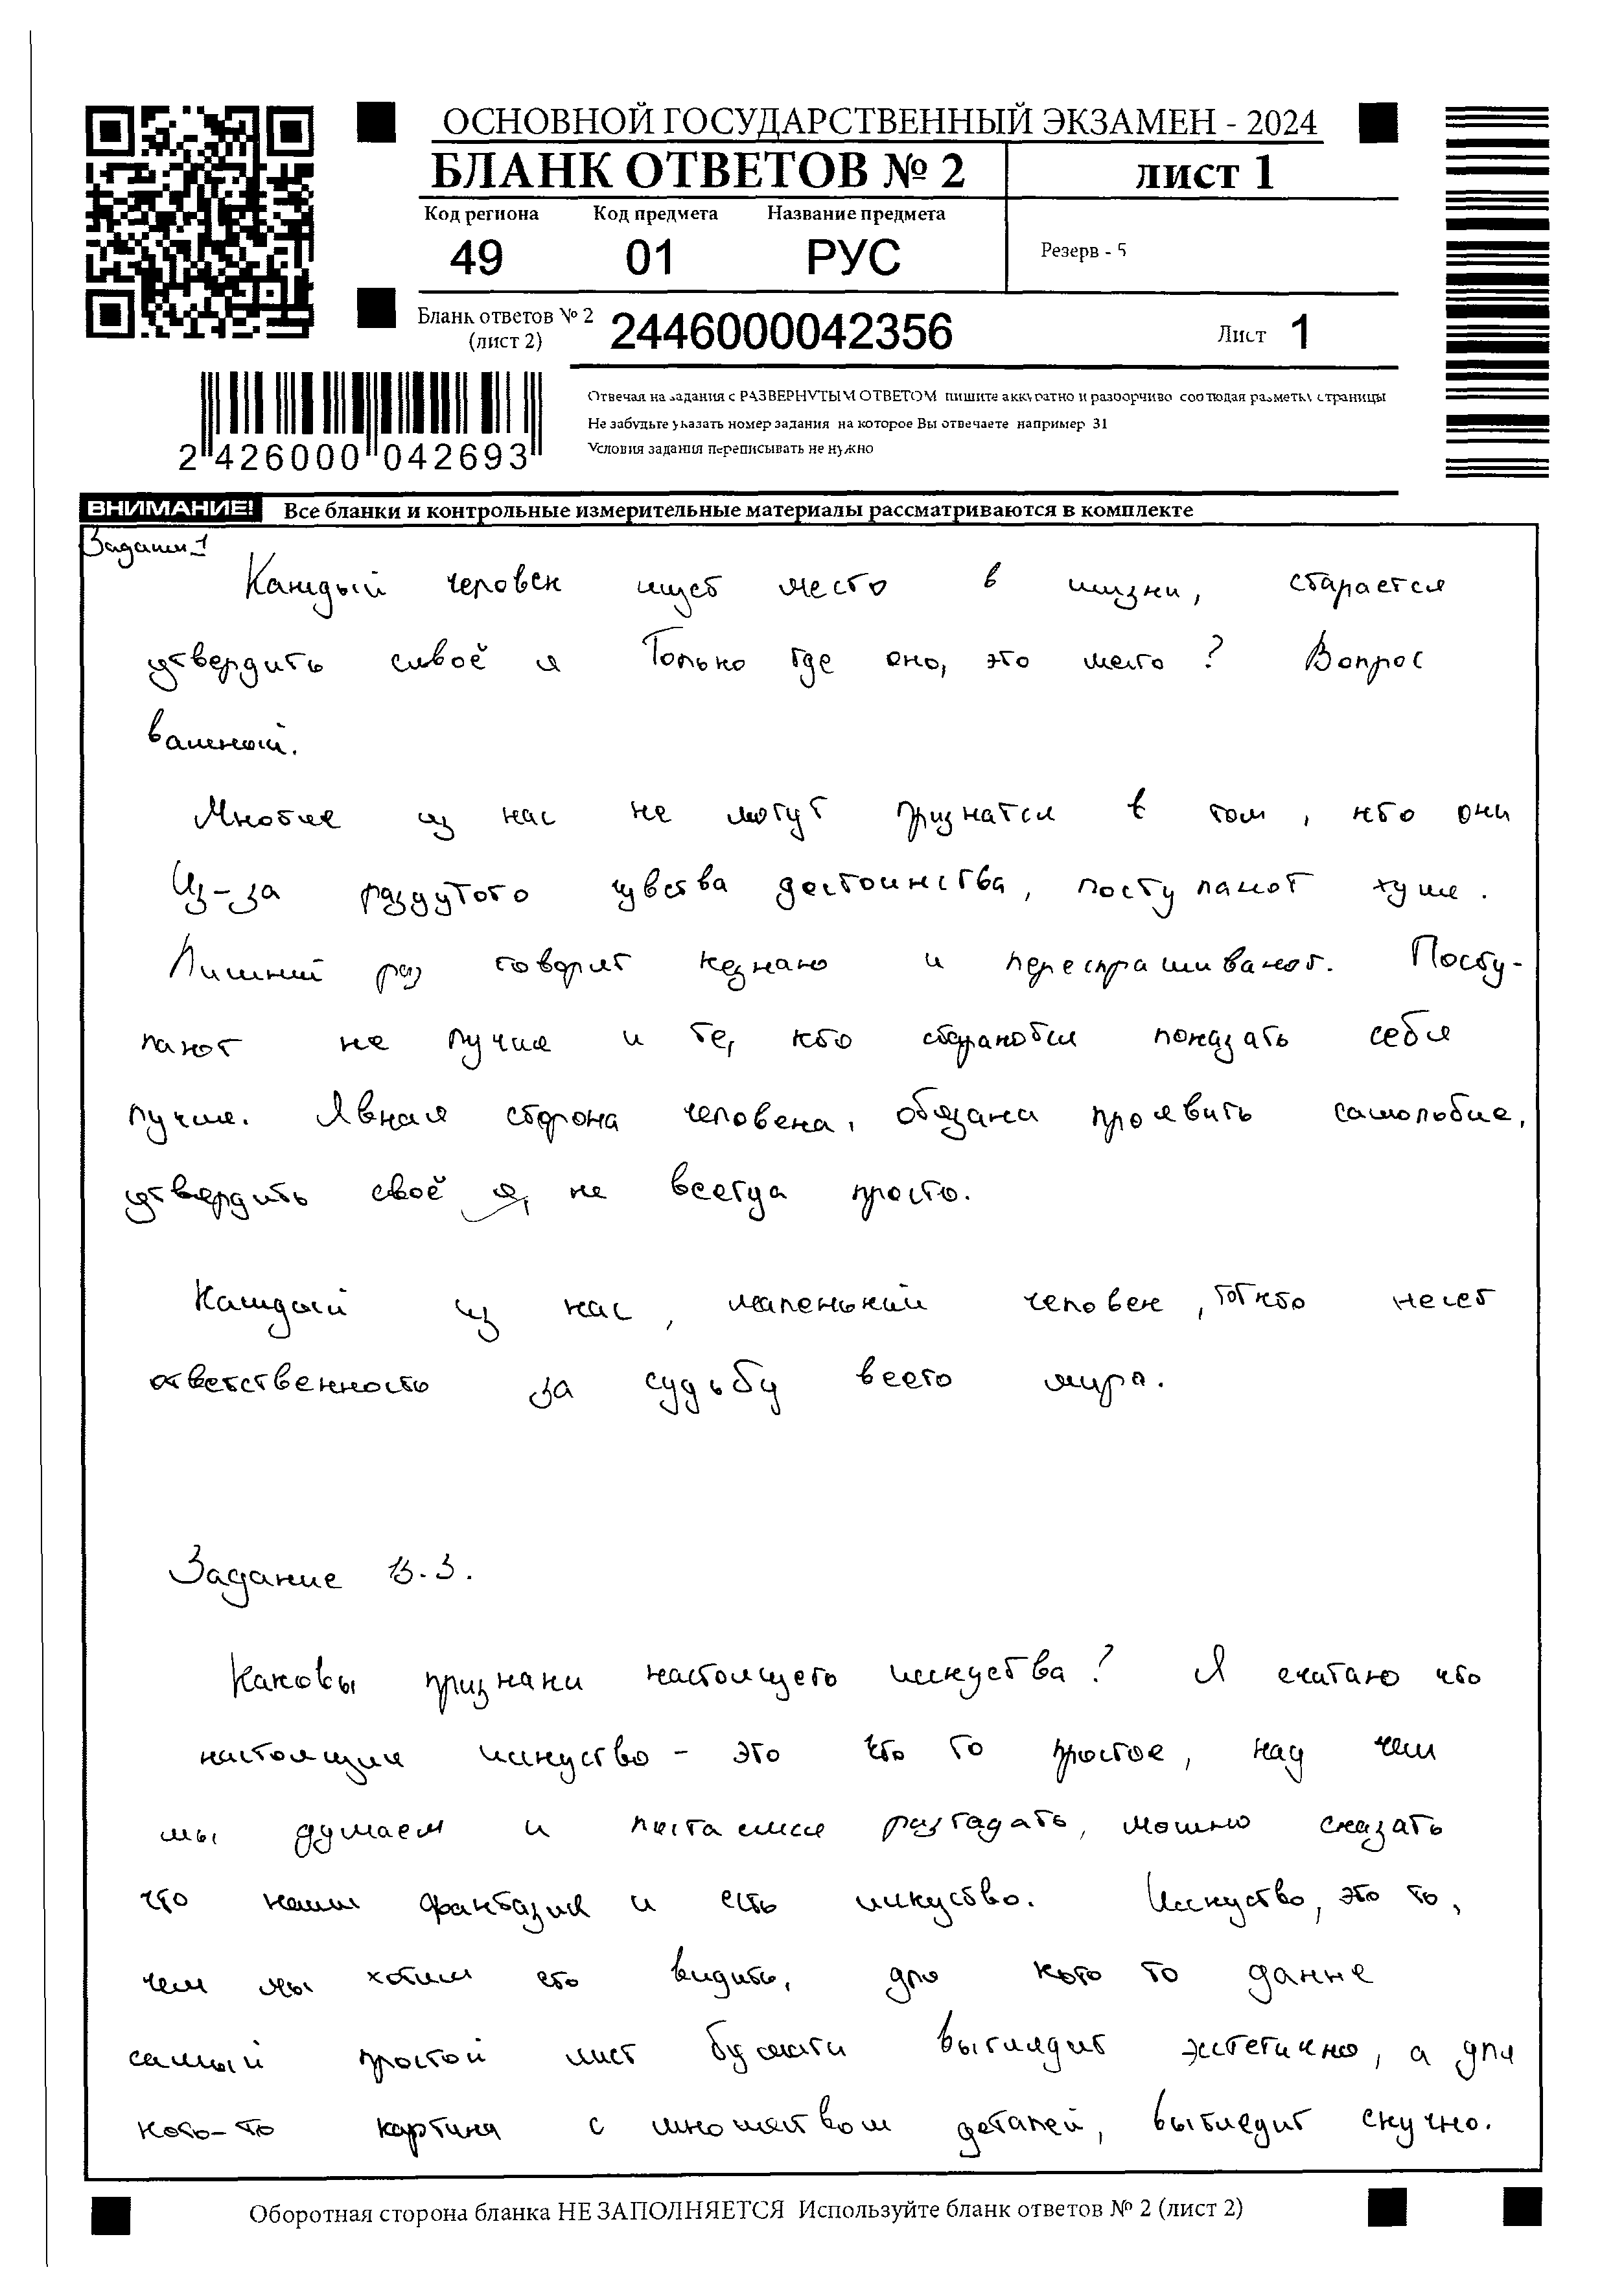 ОСНОВНОЙ ГОСУДАРСТВЕННЫЙ ЭКЗАМЕН - 2024
БЛАНК ОТВЕТОВ № 2
лист 1
Код региона Код предмета Название предмета
49 01 РУС
Резерв - 5
Бланк ответов № 2
(лист 2)
2446000042356
Лист 1
2 426000 042693
Отвечая на задания с РАЗВЕРНУТЫМ ОТВЕТОМ пишите аккуратно и разборчиво соблюдая разметку страницы
Не забудьте указать номер задания на которое Вы отвечаете например 31
Условия задания переписывать не нужно
ВНИМАНИЕ! Все бланки и контрольные измерительные материалы рассматриваются в комплекте
Задание 1
Каждый человек ищет место в жизни, старается
утвердить своё я Только где оно, это место? Вопрос
важный.
Многие из нас не могут признатся в том, кто они
Из-за раздутого чувства достоинства, поступают хуже.
Лишний раз говорят незнаю и переспрашивают. Посту-
пают не лучше и те, кто стараются показать себя
лучше. Явная сторона человека, обязана проявить самолюбие,
утвердить своё я, не всегда просто.
Каждый из нас, маленький человек, тот кто несет
ответственность за судьбу всего мира.
Задание 13.3.
Каковы признаки настоящего исскуства? Я считаю что
настоящие исскуство - это что то простое, над чем
мы думаем и пытаемся разгадать, можно сказать
что наши фантазия и есть искуство. Исскуство, это то,
чем мы хотим его видить, для кого то данне
самый простой лист бумаги выглядит эстетично, а для
кого-то картина с множеством деталей, выгледит скучно.
Оборотная сторона бланка НЕ ЗАПОЛНЯЕТСЯ Используйте бланк ответов № 2 (лист 2)